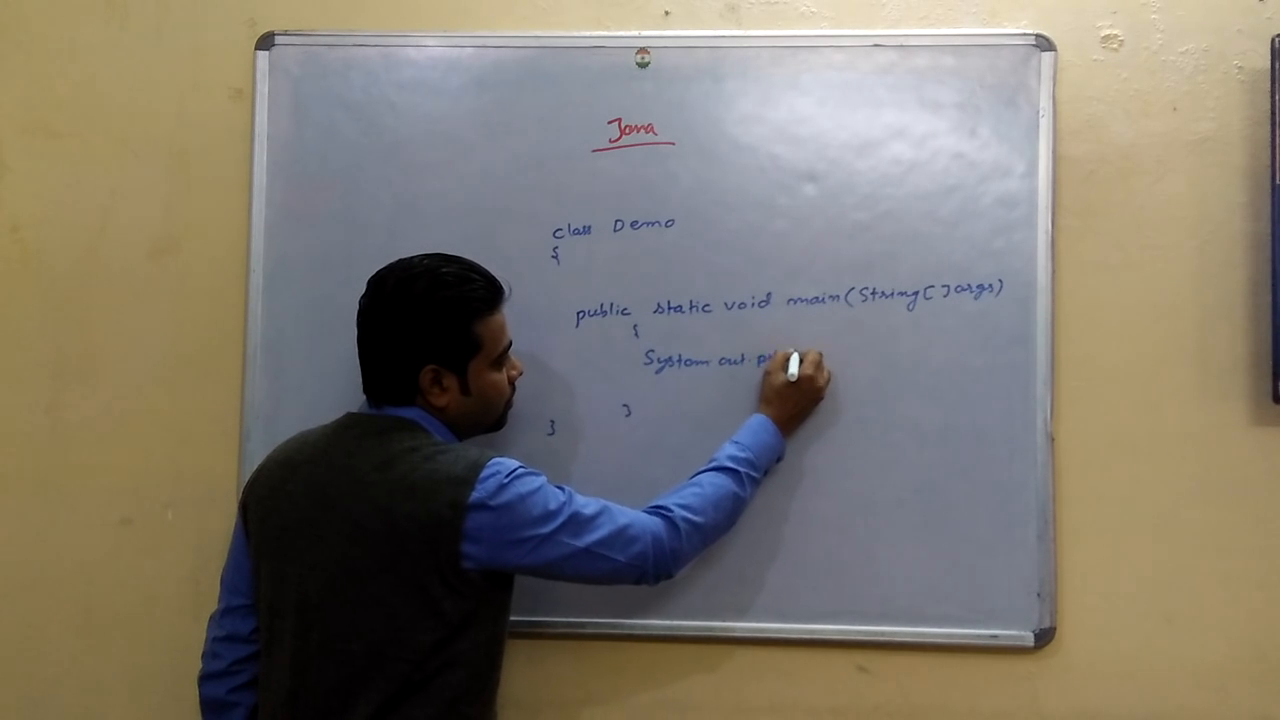 Java
class Demo
{
public static void main(String[]args)
{
System.out.p
}
}